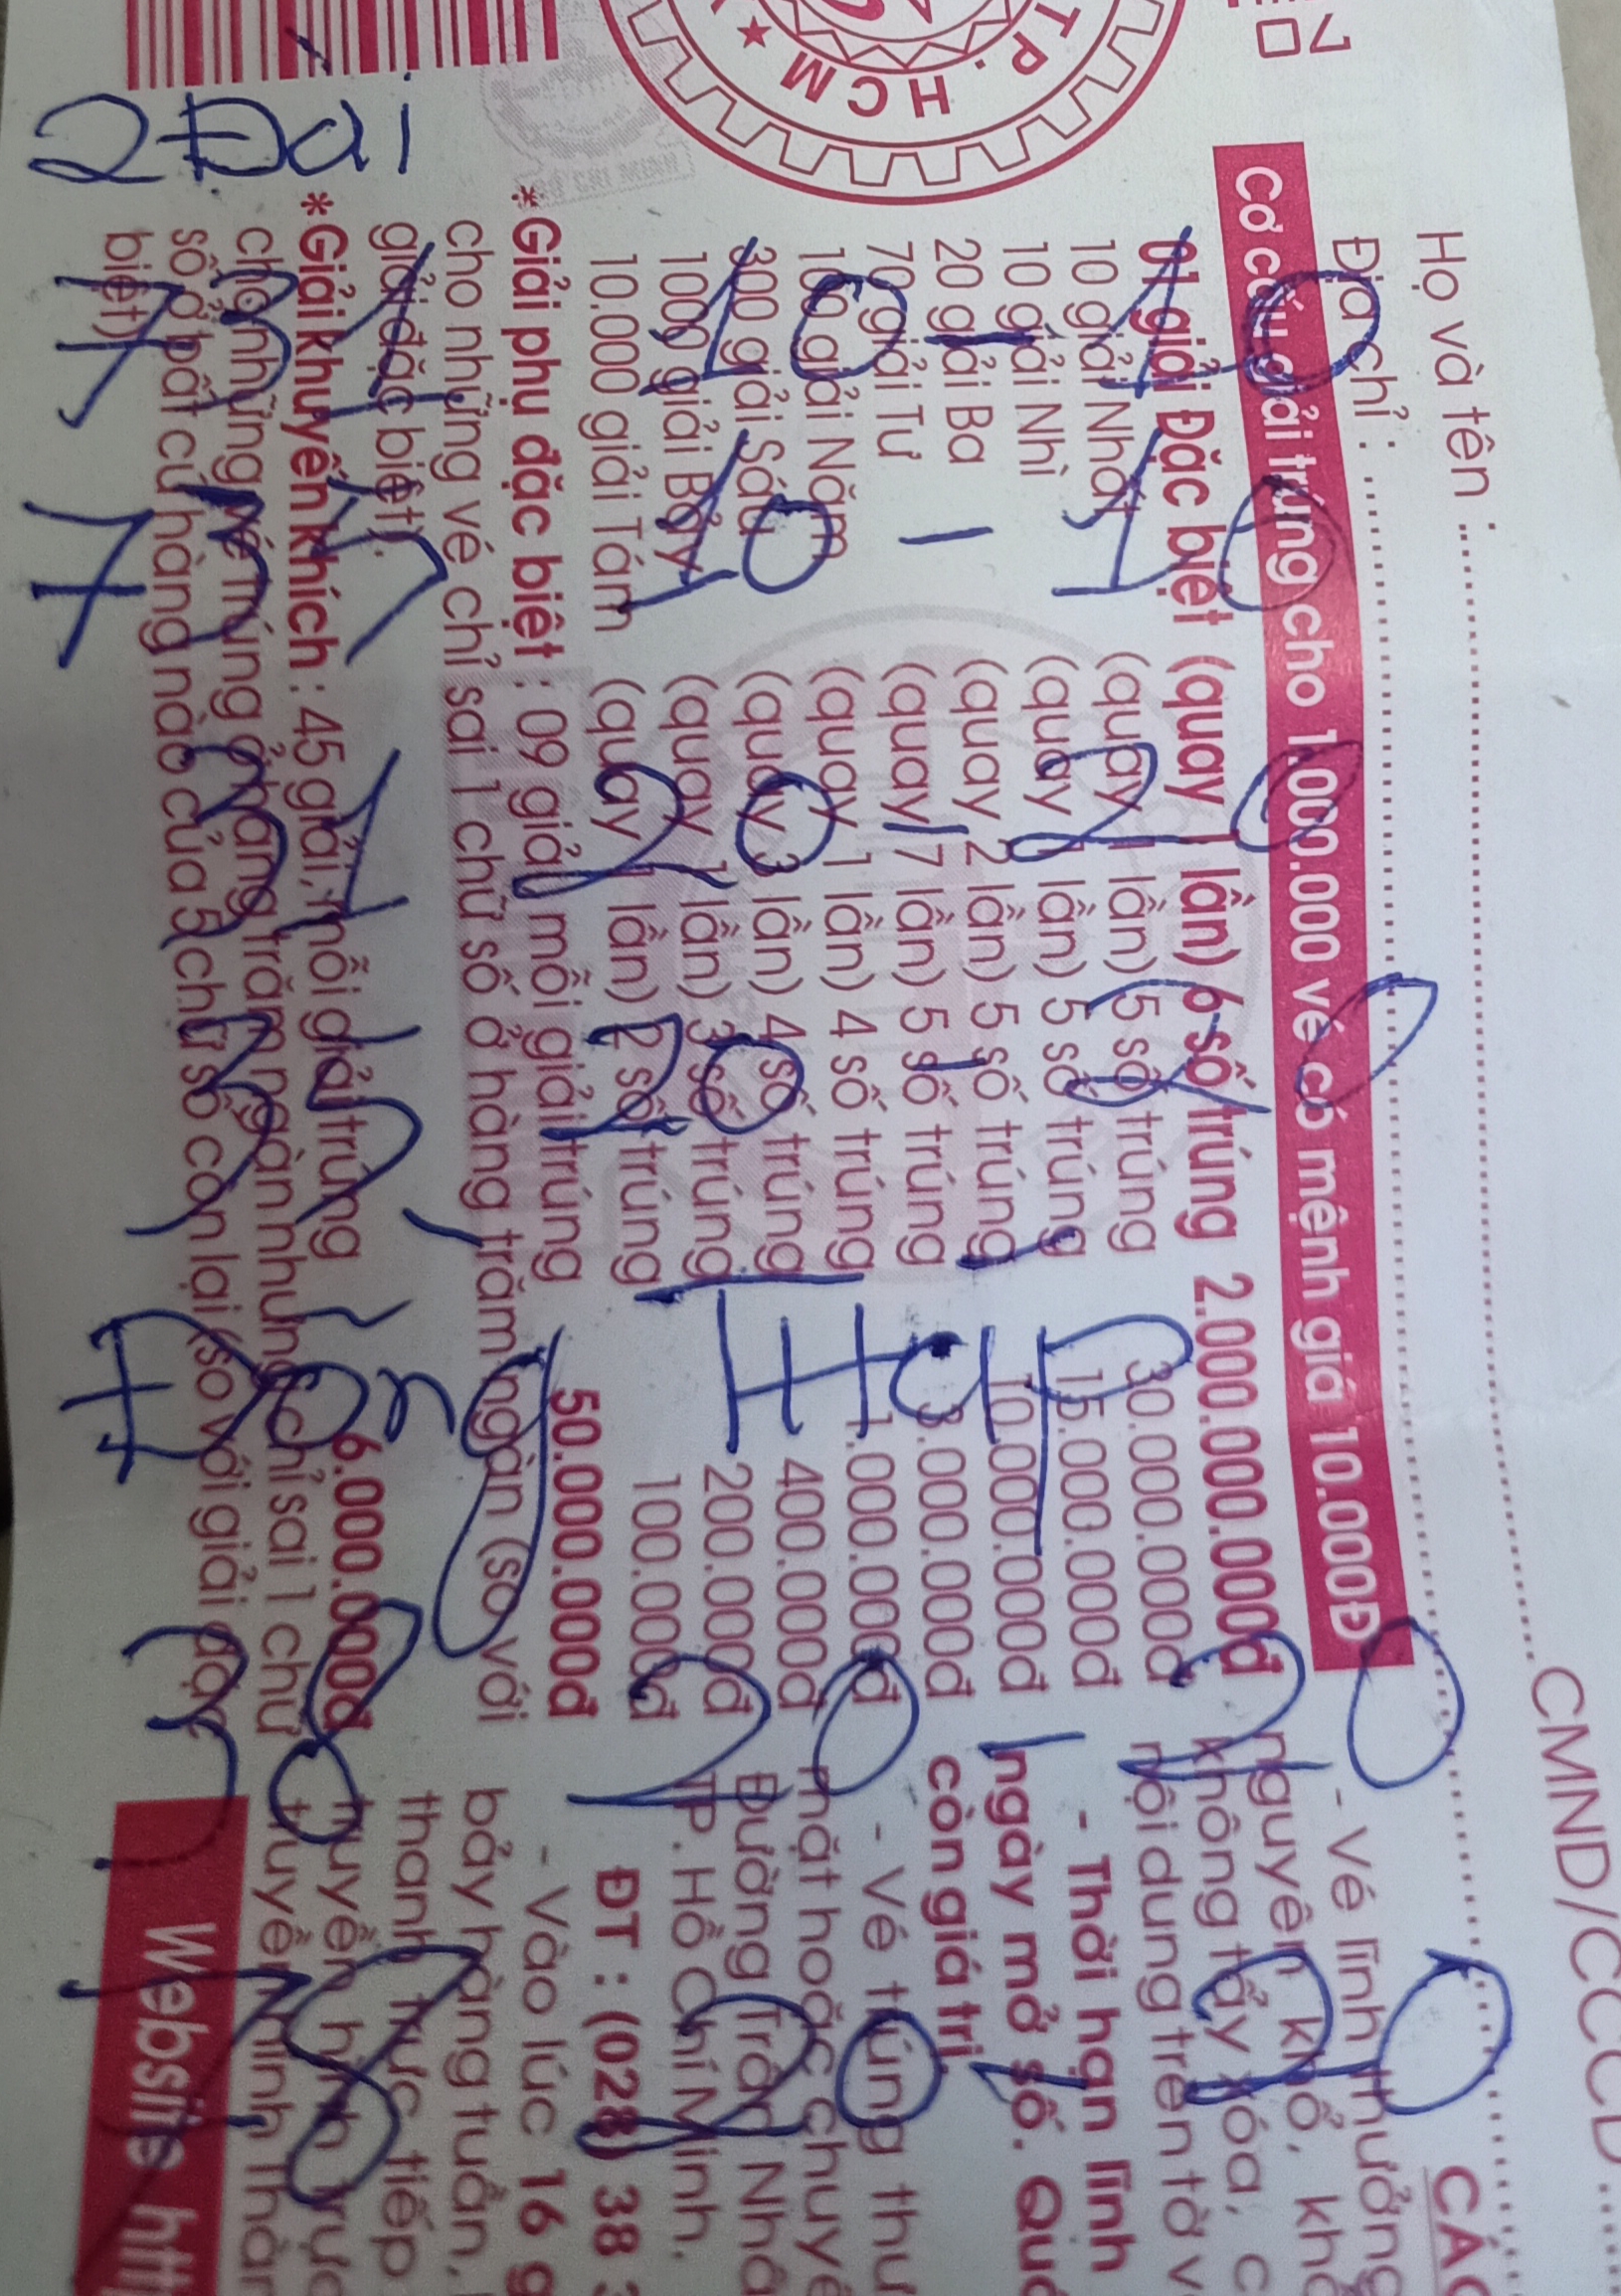 TP. HCM
Họ và tên :
CMND/CCCD
Địa chỉ :
Cơ cấu giải trúng cho 1.000.000 vé có mệnh giá 10.000Đ
01 giải Đặc biệt (quay 1 lần) 6 số trúng 2.000.000.000đ
10 giải Nhất (quay 1 lần) 5 số trúng 30.000.000đ
10 giải Nhì (quay 1 lần) 5 số trúng 15.000.000đ
20 giải Ba (quay 2 lần) 5 số trúng 10.000.000đ
70 giải Tư (quay 7 lần) 5 số trúng 3.000.000đ
100 giải Năm (quay 1 lần) 4 số trúng 1.000.000đ
300 giải Sáu (quay 3 lần) 4 số trúng 400.000đ
1000 giải Bảy (quay 1 lần) 3 số trúng 200.000đ
10.000 giải Tám (quay 1 lần) 2 số trúng 100.000đ
*Giải phụ đặc biệt : 09 giải, mỗi giải trúng 50.000.000đ
cho những vé chỉ sai 1 chữ số ở hàng trăm ngàn (so với
giải đặc biệt).
*Giải khuyến khích : 45 giải, mỗi giải trúng 6.000.000đ
cho những vé trúng ở hàng trăm ngàn nhưng chỉ sai 1 chữ
số ở bất cứ hàng nào của 5 chữ số còn lại (so với giải đặc
biệt)
- Vé lĩnh thưởng
nguyên khổ,
không tẩy xóa,
nội dung trên tờ
- Thời hạn lĩnh
ngày mở số.
còn giá trị.
- Vé trúng
mặt hoặc
Đường Trần
TP. Hồ Chí Minh.
ĐT : (028) 38
- Vào lúc 16
bảy hàng tuần,
thanh trực tiếp
truyền hình
Website
2 Đài
731 10 - 10
735 10 - 10
31 20 - 20
35 20 - 20
Đồng Tháp
38 20 - 20
78 20 - 20